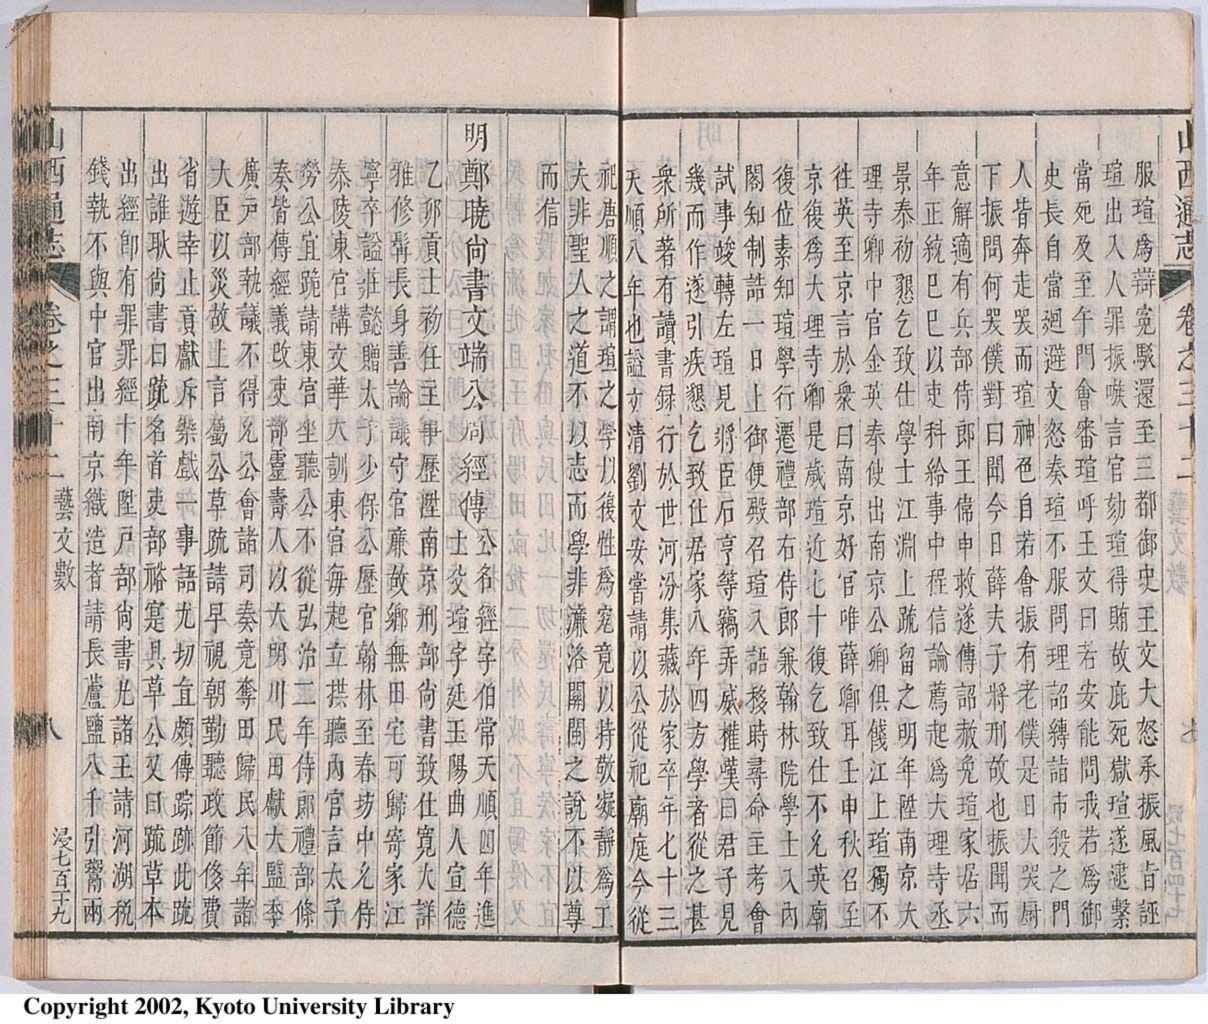 山西通志 卷之三十二
服瑄爲辯寃駁還至三都御史王文大怒承振風旨誣
瑄出入人罪振嗾言官劾瑄得賄故庇死獄瑄遂逮繫
當死及至午門會審瑄呼王文曰若安能問我若爲御
史長自當迴避文怒奏瑄不服問理詔縛詣市殺之門
人皆奔走哭而瑄神色自若會振有老僕是日大哭厨
下振問何哭僕對曰聞今日薛夫子將刑故也振聞而
意解適有兵部侍郎王偉申救遂傳詔赦免瑄家居六
年正統巳巳以吏科給事中程信論薦起爲大理寺丞
景泰初懇乞致仕學士江淵上疏留之明年陞南京大
理寺卿中官金英奉使出南京公卿俱餞江上瑄獨不
徃英至京言於衆曰南京好官唯薛卿耳壬申秋召至
京復爲大理寺卿是歲瑄近七十復乞致仕不允英廟
復位素知瑄學行遷禮部右侍郎兼翰林院學士入內
閣知制誥一日上御便殿召瑄入語移時尋命主考會
試事竣轉左瑄見將臣石亨等竊弄威權嘆曰君子見
幾而作遂引疾懇乞致仕居家八年四方學者從之甚
衆所著有讀書録行於世河汾集藏於家卒年七十三
天順八年也謚文清劉文安嘗請以公從祀廟庭今從
祀唐順之謂瑄之學以後性爲宠竟以持敬凝靜爲工
夫非聖人之道不以志而學非濂洛關閩之說不以尊
而信
明鄭曉尚書文端公周經傳 公名經字伯常天順四年進
乙卯貢士初任主事歷陞南京刑部尚書致仕寬大詳
雅修髯長身善論議守官廉故鄉無田宅可歸寄家江
寧卒謚莊懿贈太子少保公歷官翰林至春坊中允侍
泰陵東官講文華大訓東官每起立拱聽內官言太子
勞公宜跪請東官坐聽公不從弘治二年侍郎禮部條
奏皆傳經義改吏部靈壽人以大明川民田獻大監李
廣戸部執議不得允公會諸司奏竟奪田歸民八年諸
大臣以災故上言屬公草疏請早視朝勤聽政節俊費
省遊幸止貢獻斥樂戲一事語尤切直頗傳踪跡此疏
出誰耿尚書曰疏名首吏部裕寔具草公又曰疏草本
出經卽有罪罪經十年陞戸部尚書尤諸王請河湖稅
錢執不與中官出南京織造者請長蘆鹽八千引鬻兩
山西通志 卷之三十二 藝文數 八 浸七百十九